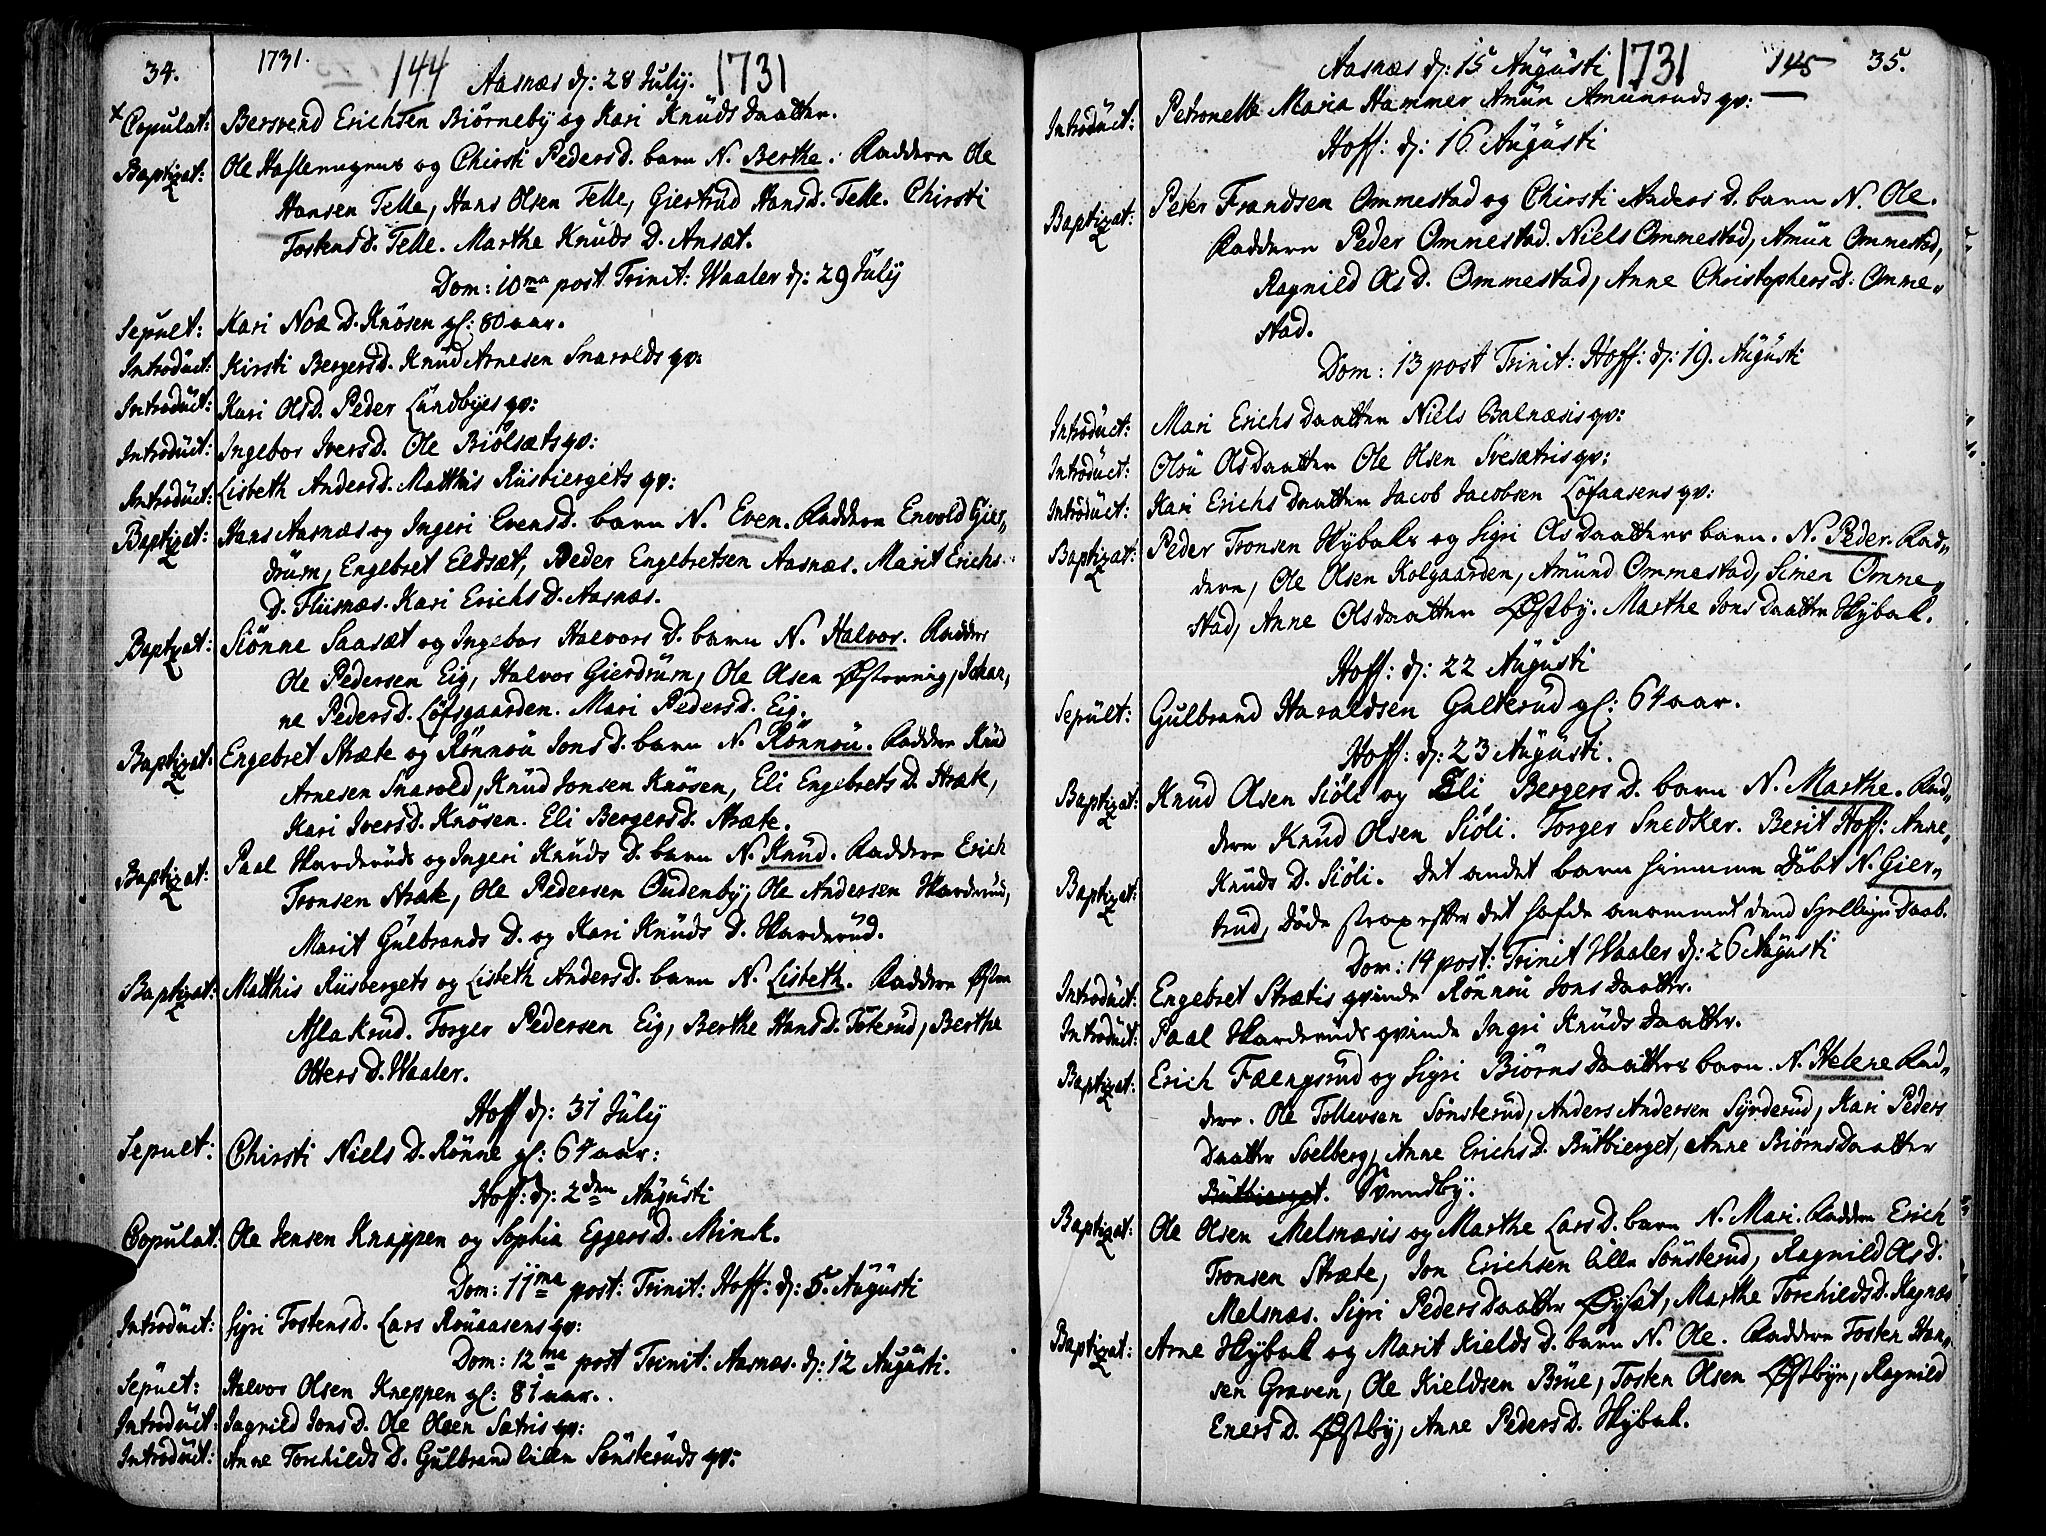 34. 1731. 144 Aasnæs d: 28 July. 1731
Copulat: Bersvend Erichsen Biørneby og Kari Knüds Daatter.
Baptizat: Ole Haslemügens og Chirsti Pedersd. barn N. Berthe. Faddere Ole
Hansen Telle, Hans Olsen Telle, Giertrud Hansd. Telle. Chirsti
Tostensd. Telle. Marthe Knüds D. Ansæt.
Dom: 10ma post Trinit: Waaler d: 29 Julÿ
Sepult: Kari Noæ D. Knøsen gl: 80 aar.
Introduct: Kirsti Bergersd. Knüd Arnesen Snarolds qv:
Introduct: Kari Olsd. Peder Lündbyes qv:
Introduct: Ingebor Iversd. Ole Biølsæts qv:
Introduct: Lisbeth Andersd. Matthis Riisbiergets qv:
Baptizat: Hans Aasnæs og Ingeri Evensd. barn N. Even. Faddere Envold Gier,,
drüm, Engebret Eldsæt, Peder Engebretsen Aasnæs. Marit Erichs
D. Fliisnæs. Kari Erichs D. Aasnæs.
Baptizat: Siønne Saasæt og Ingebor Halvors D. barn N. Halvor. Fadder
Ole Pedersen Eig, Halvor Gierdrüm, Ole Olsen Østerning, Johan,,
ne Pedersd. Løfsgaarden. Mari Pedersd. Eig.
Baptizat: Engebret Stræte og Rønnoü Jonsd. barn N. Rønnoü. Faddere Knüd
Arnesen Snarold, Knüd Jonsen Knøsen, Eli Engebretsd. Stræte,
Kari Iversd. Knøsen. Eli Bergersd. Stræte.
Baptizat: Paal Skarderüds og Ingeri Knüds D. barn N. Knüd. Faddere Erich
Tronsen Stræte, Ole Pedersen Oudenby, Ole Andersen Skarderud,
Marit Gülbrands D. og Kari Knüds D. Skarderüd.
Baptizat: Matthis Riisbergets og Lisbeth Andersd. barn N. Lisbeth. Faddere Østen
Aslakrud. Torger Pedersen Eig, Berthe Hansd. Toterud, Berthe
Ottersd. Waaler.
Hoff d: 31 Jülÿ
Sepult: Chirsti Niels D. Rønne gl: 64 aar:
Hoff: d: 2den Augüsti
Copulat: Ole Jensen Knappen og Sophia Eggersd. Mink.
Dom: 11ma post: Trinit: Hoff: d: 5. Augüsti
Introduct: Sigri Tostensd. Lars Roüaasens qv:
Dom: 12ma post Trinit: Aasnæs. d: 12 Augüsti.
Sepult: Halvor Olsen Kneppen gl: 81 aar.
Introduct: Ingnild Jonsd. Ole Olsen Sætris qv:
Introduct: Anne Torchilds D. Gülbrand lille Sønsterüds qv:
Aasnæs d: 15 Augüsti 1731 145 35.
Introduct: Petronelle Maria Hammer Amün Amünruds qv:
Hoff: d: 16 Augüsti
Baptizat: Peter Frandsen Ommestad og Chirsti Anders D. barn N. Ole.
Faddere Peder Ommestad. Niels Ommestad, Amün Ommestad,
Ragnild Ols D. Ommestad, Anne Christophers D. Omme,,
stad.
Dom: 13 post Trinit: Hoff: d: 19. Augüsti
Introduct: Mari Erichs Daatter Niels Balnæsis qv:
Introduct: Oloü Olsdaatter Ole Olsen Svesætris qv:
Introduct: Kari Erichs Daatter Jacob Jacobsen Løfaasens qv:
Baptizat: Peder Tronsen Skÿbaks og Sigri Olsdaatters barn. N. Peder. Fad,,
dere, Ole Olsen Kolgaarden, Amünd Ommestad, Simen Omme,,
stad, Anne Olsdaatter Østbÿ. Marthe Jonsdaatter Skÿbak.
Hoff: d: 22 Augüsti
Sepult: Gülbrand Haraldsen Galterud gl: 64 aar.
Hoff: d: 23 Augüsti.
Baptizat: Knüd Olsen Siøli og Eli Bergers D. barn N. Marthe. Fad,,
dere Knüd Olsen Siøli. Torger Snedker. Berit Hoff: Anne,,
Baptizat: Knüds D. Siøli. Det andet barn hiemme Døbt N. Gier,,
trud, Døde strax efter det hafde anammet dend Daab.
Dom: 14 post: Trinit Waaler d: 26 Augüsti
Introduct: Engebret Strætis qvinde Rønnoü Jonsdaatter.
Introduct: Paal Skarderüds qvinde Ingri Knüds Daatter.
Baptizat: Erich Faengsrüd og Sigri Biørnsdaatters barn. N. Helene Fad,,
dere. Ole Tollevsen Sønsterüd, Anders Andersen Sÿnderüd, Kari Peders
Daatter Soelberg, Anne Erichs D. Bütbierget, Anne Biørnsdaatter
Bütbierget. Svendbÿ.
Baptizat: Ole Olsen Melsnæsis og Marthe Larsd. barn N. Mari. Faddere Erich
Tronsen Stræte, Jon Erichsen lille Sønsterüd, Ragnild Ols D.
Melsnæs. Sigri Pedersdaatter Øÿsæt, Marthe Torchildsd. Ragnæs
Baptizat: Arne Skÿbak og Marit Kields D. barn N. Ole. Faddere Tosten Han,,
sen Graven, Ole Kieldsen Brüe, Tosten Olsen Østbÿe, Ragnild
Eners D. Østbÿ, Anne Pedersd. Skÿbak.